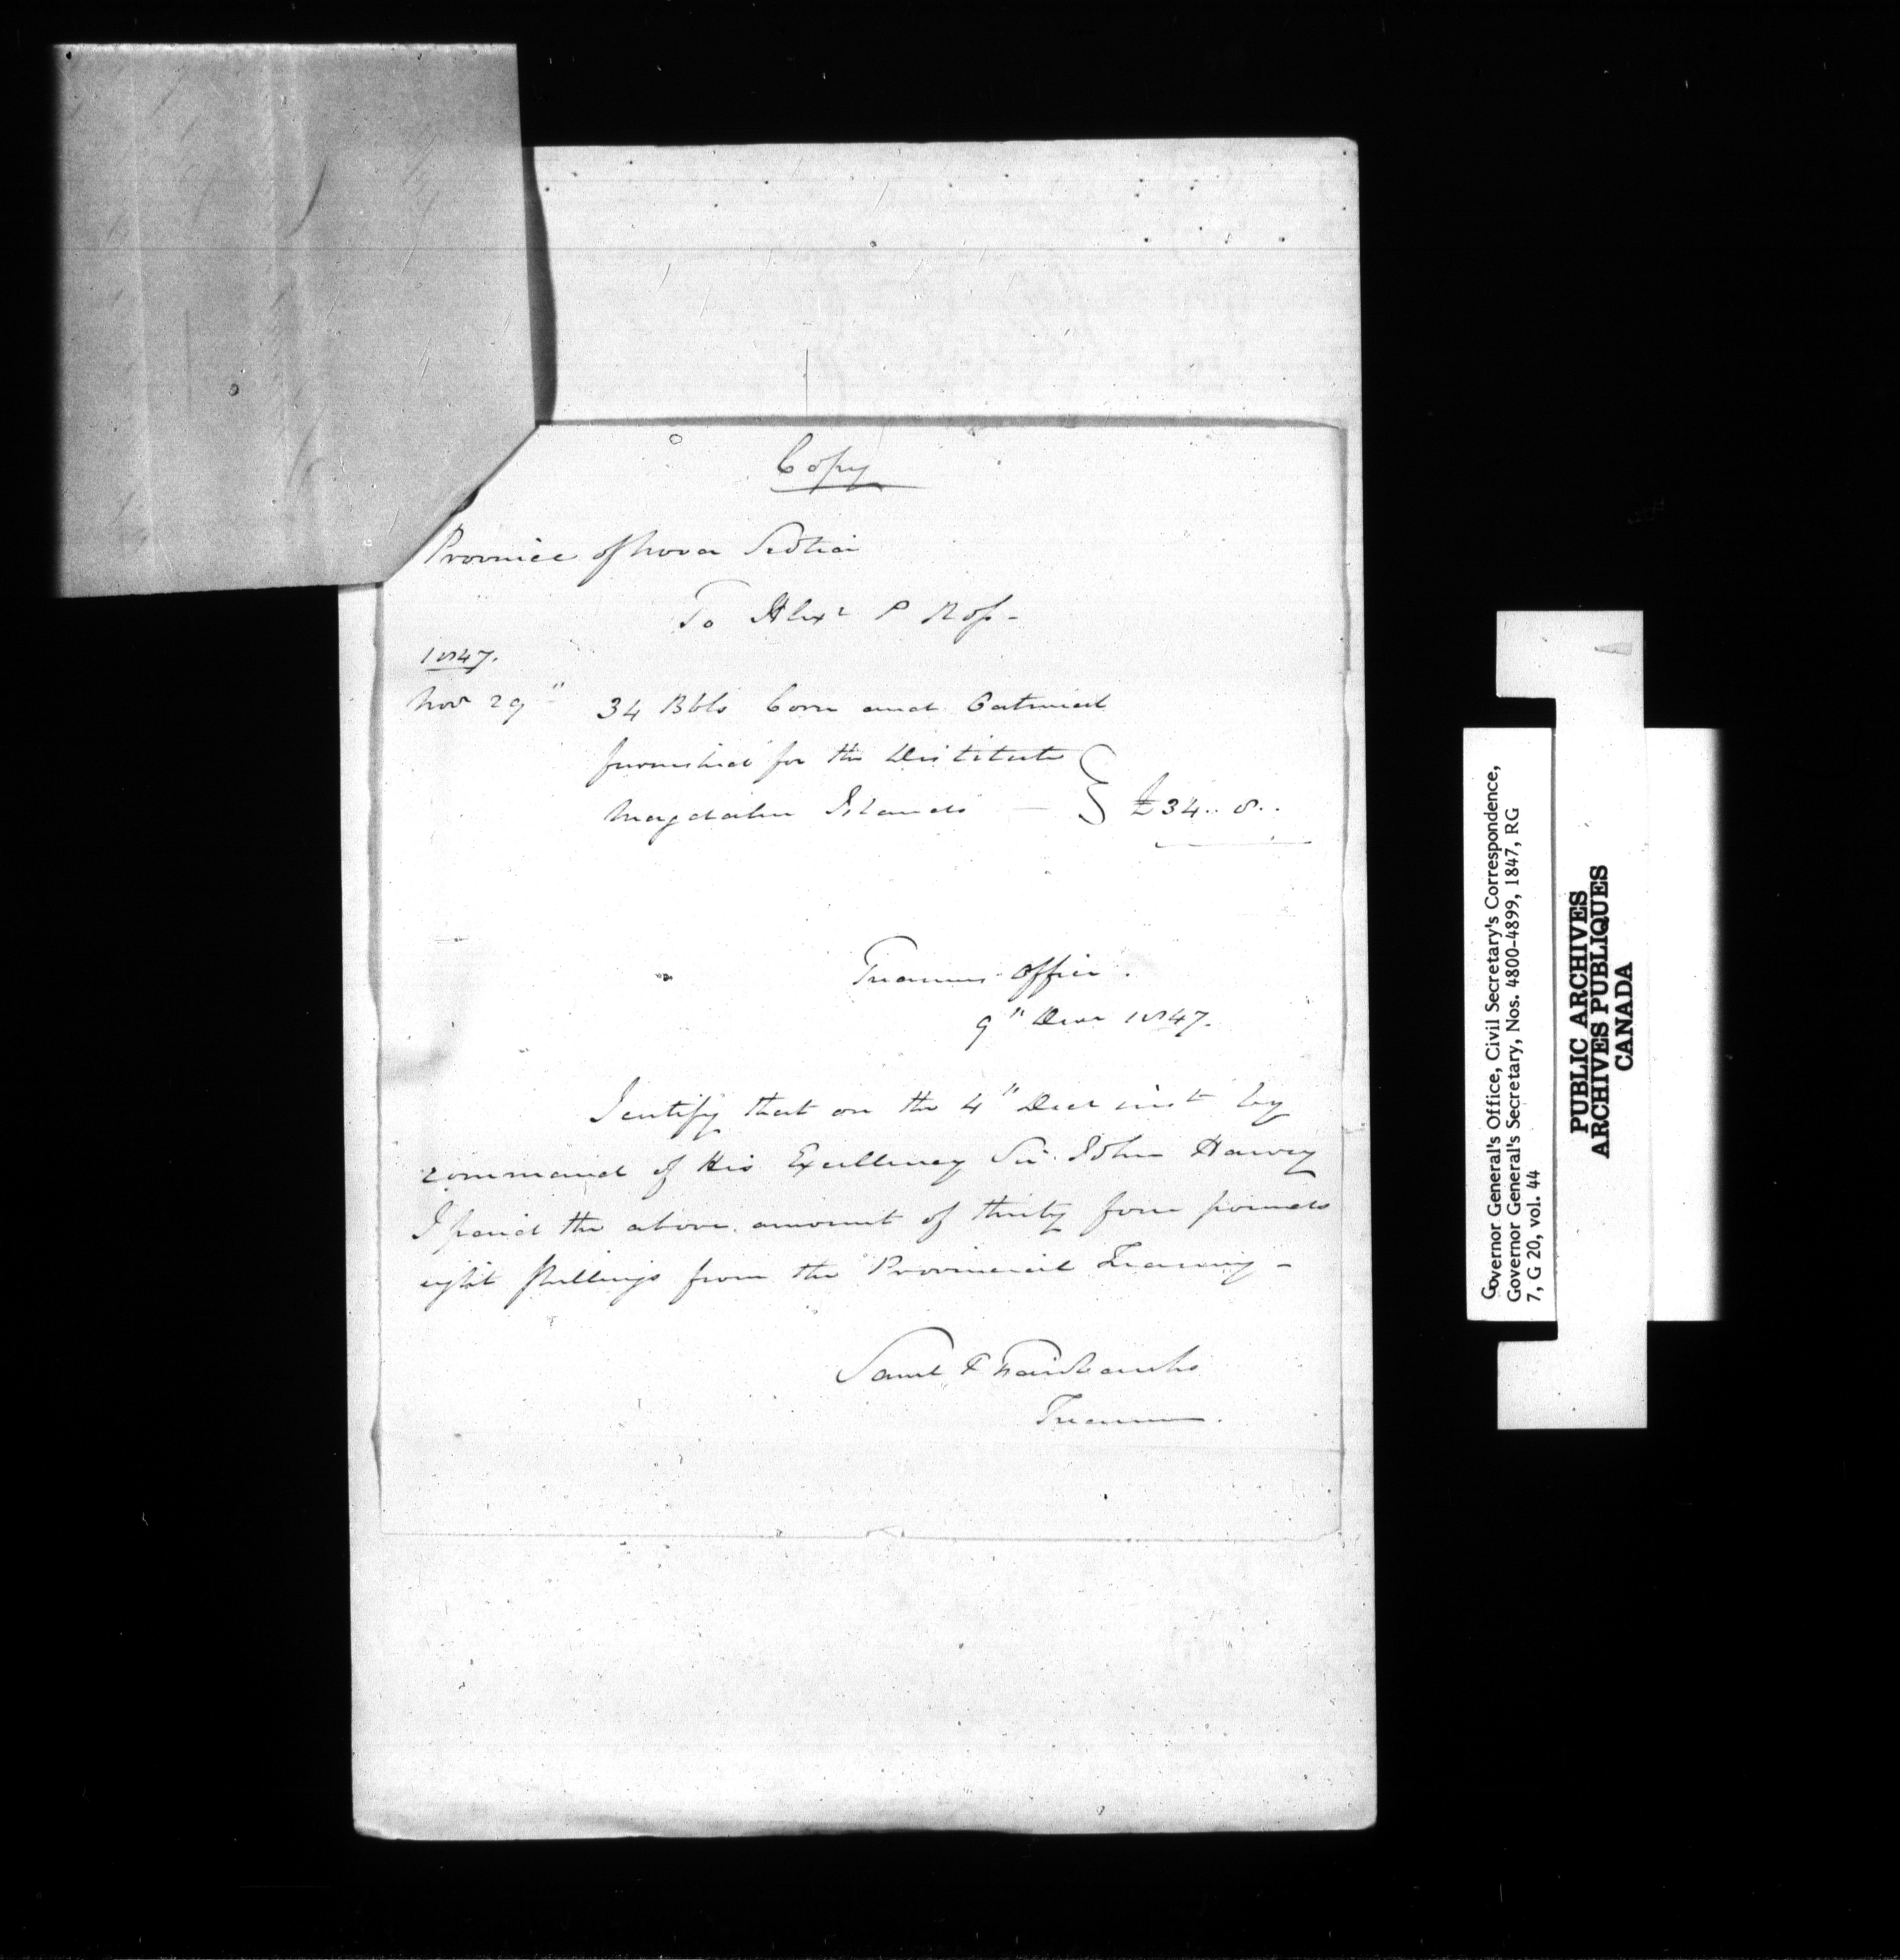 Copy
Province of Nova Scotia
To Alexr P Ross -
1847.
Nov 29" 34 Bbls Corn and Oatmeal
furnished for the Destitute
Magdalen Islands — } £34.. 8..
Treasurers Office.
9" Decr 1847.
I certify that on the 4" Decr inst by
command of His Excellency Sir John Harvey
I paid the above amount of thirty four pounds
eight shillings from the Provincial Treasury -
Saml P Fairbanks
Treasurer.
Governor General's Office, Civil Secretary's Correspondence,
Governor General's Secretary, Nos. 4800-4899, 1847, RG
7, G 20, vol. 44
PUBLIC ARCHIVES
ARCHIVES PUBLIQUES
CANADA